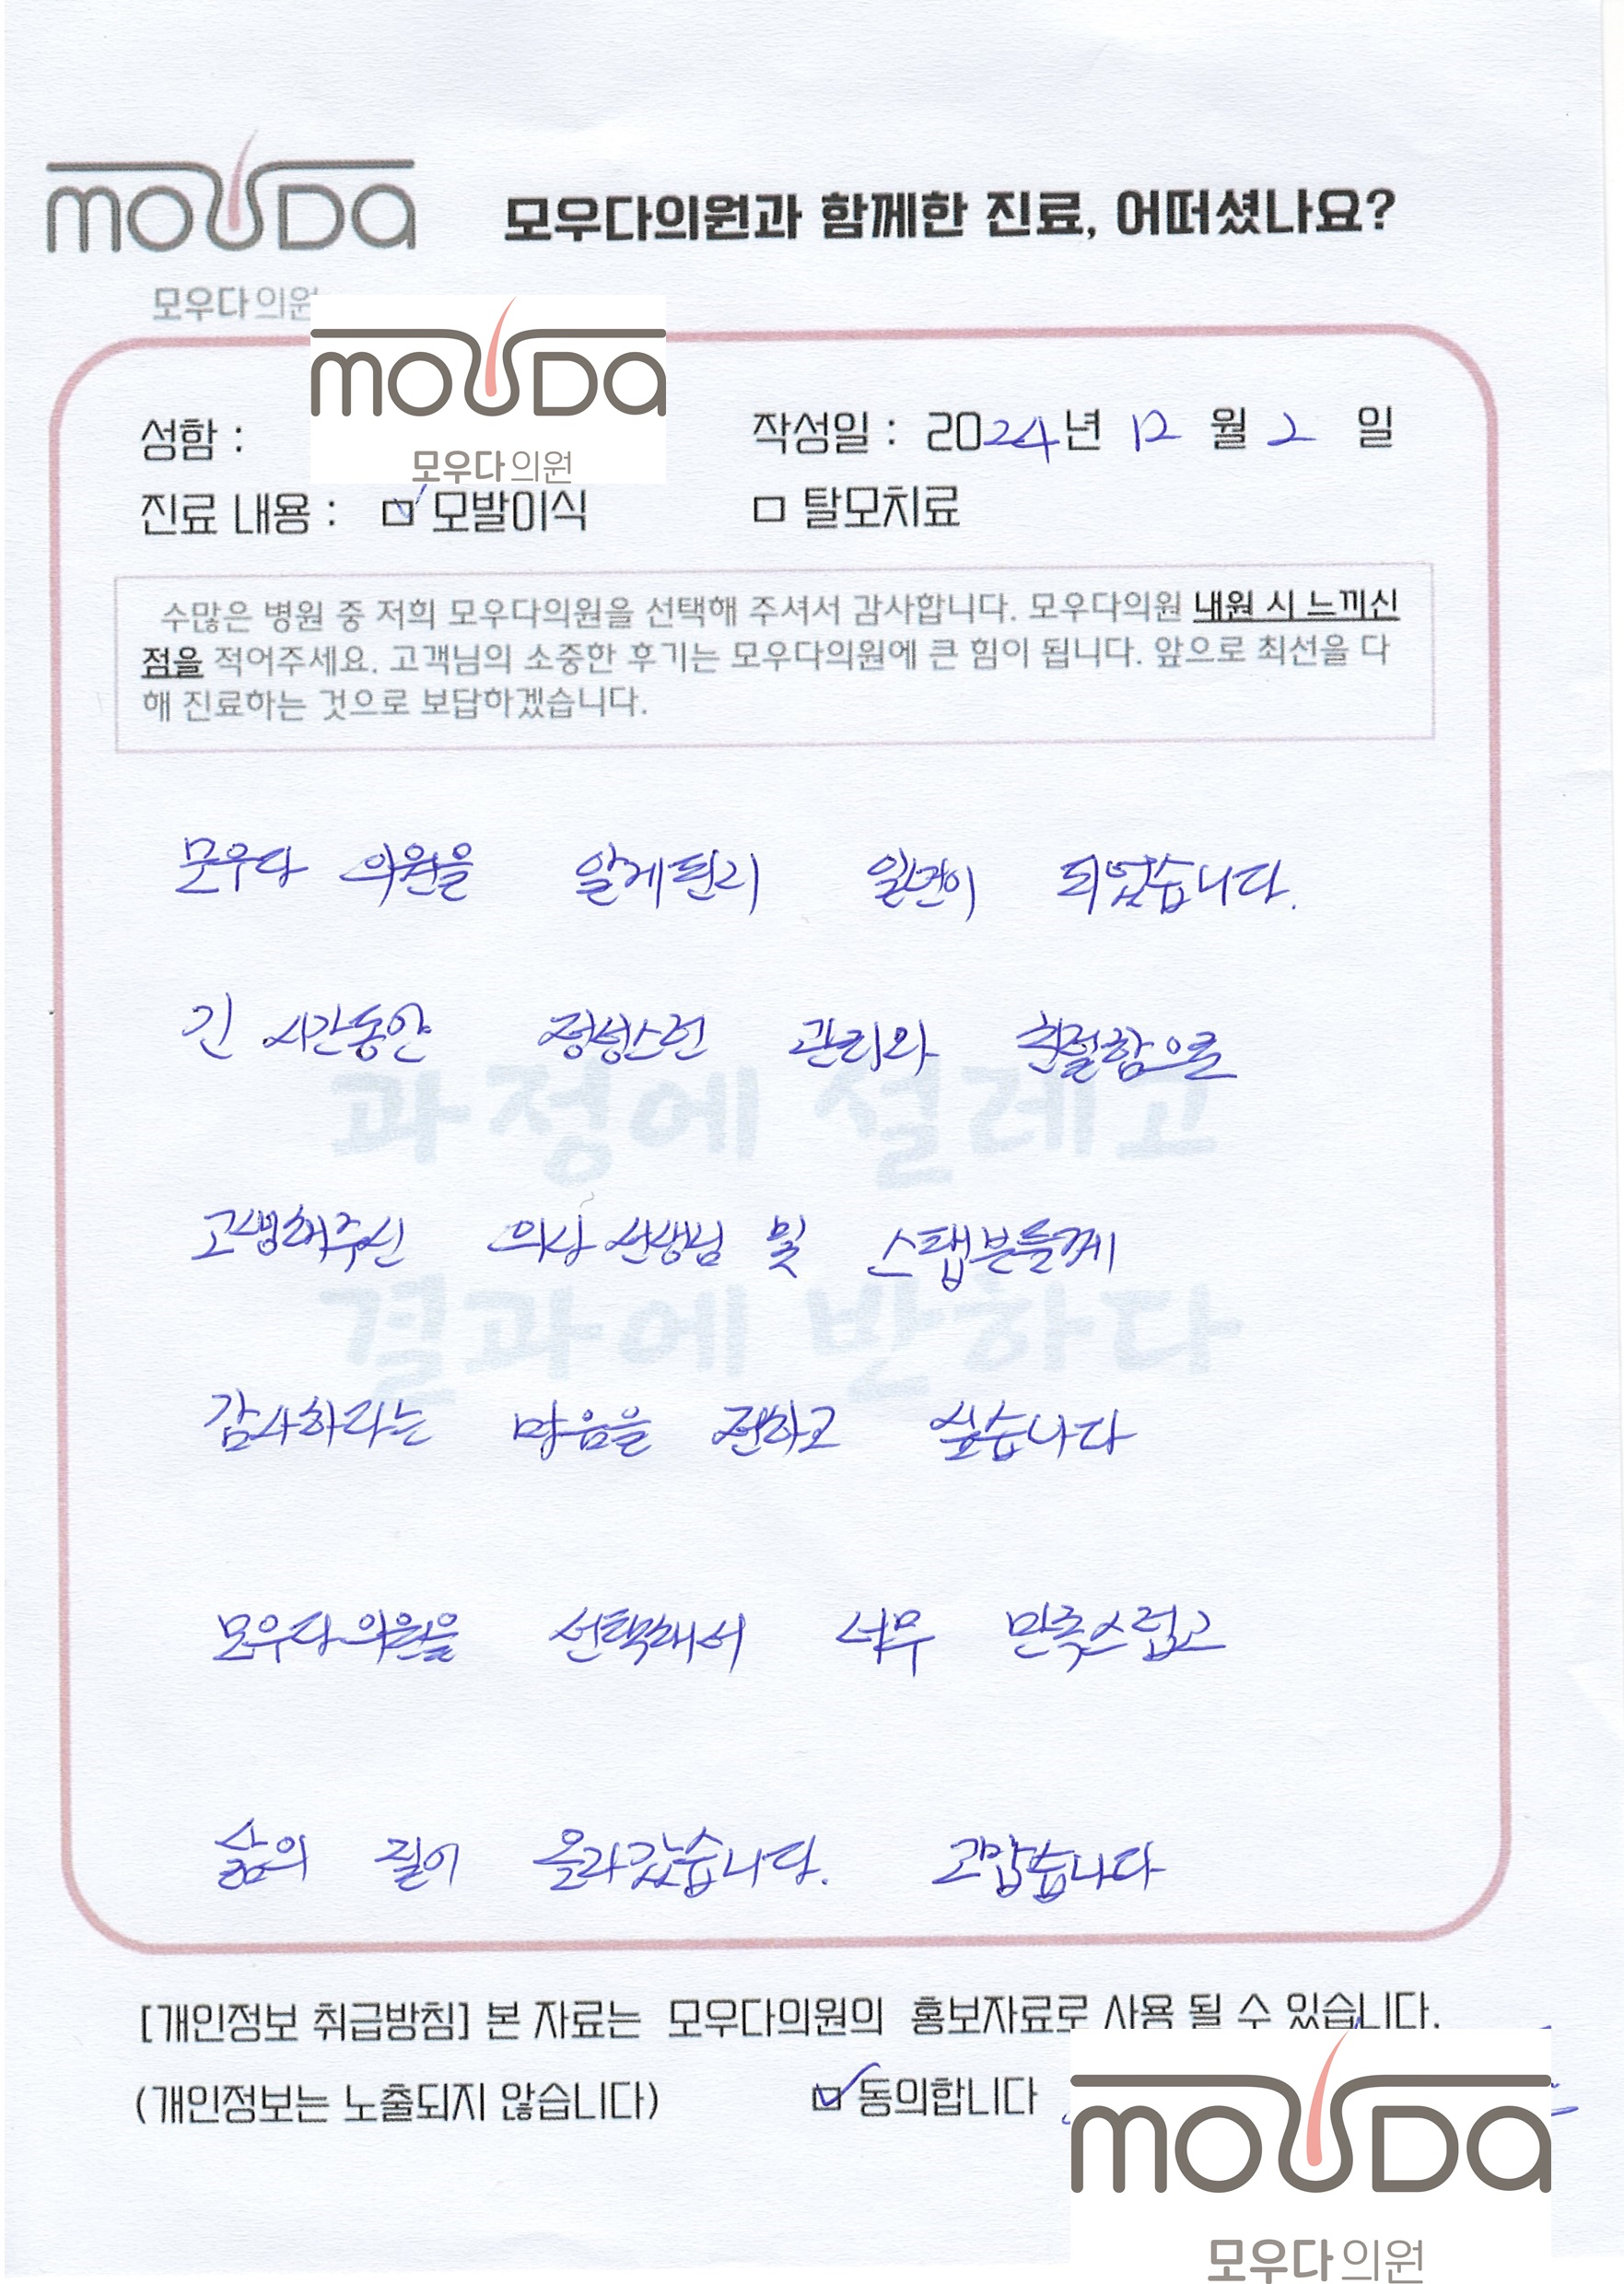 mouda
모우다의원과 함께한 진료, 어떠셨나요?
모우다의원
mouda
모우다의원
성함 :
작성일 : 2024년 12월 2일
진료 내용 : ☑ 모발이식 □ 탈모치료
수많은 병원 중 저희 모우다의원을 선택해 주셔서 감사합니다. 모우다의원 내원 시 느끼신
점을 적어주세요. 고객님의 소중한 후기는 모우다의원에 큰 힘이 됩니다. 앞으로 최선을 다
해 진료하는 것으로 보답하겠습니다.
모우다 의원을 알게된지 일년이 되었습니다.
긴 시간동안 정성스런 관리와 친절함으로
과정에 설레고
고생해주신 의사 선생님 및 스탭분들께
결과에 반하다
감사하라는 마음을 전하고 싶습니다
모우다의원을 선택해서 너무 만족스럽고
삶의 질이 올라갔습니다. 고맙습니다
[개인정보 취급방침] 본 자료는 모우다의원의 홍보자료로 사용 될 수 있습니다.
(개인정보는 노출되지 않습니다) ☑ 동의합니다
mouda
모우다의원